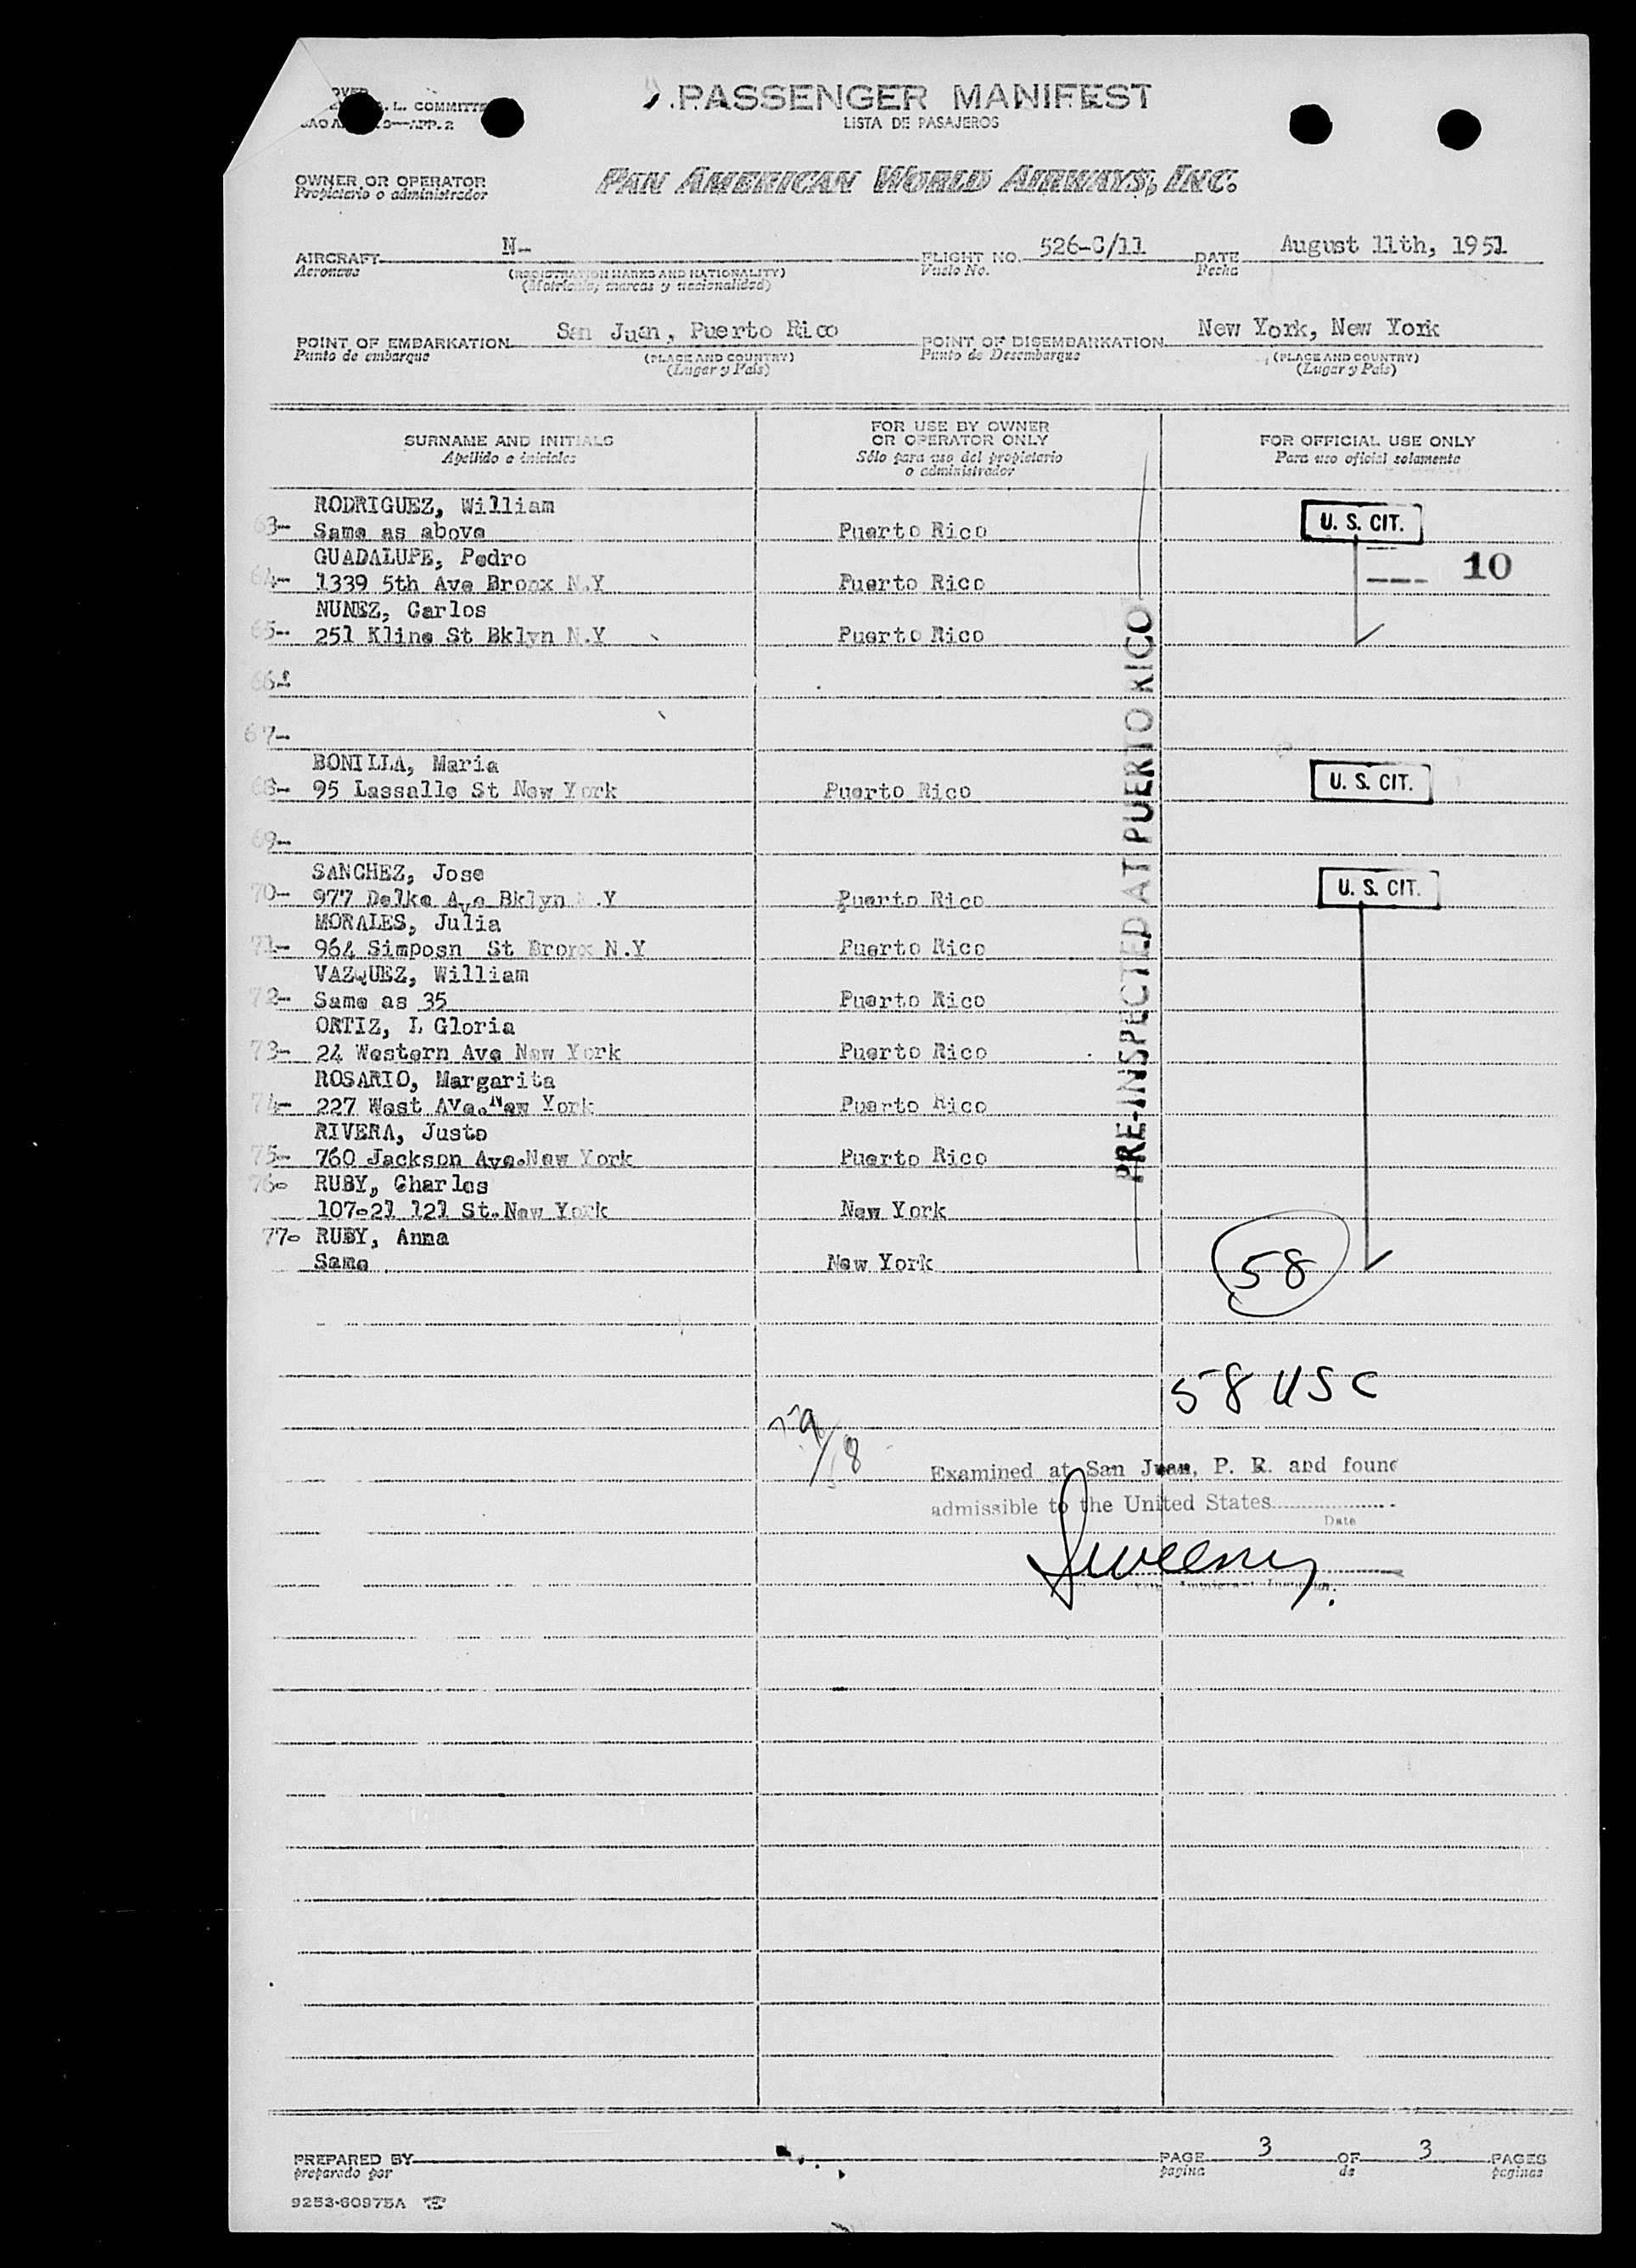 PASSENGER MANIFEST
LISTA DE PASAJEROS
L. COMMITTE
APP. 2
OWNER OR OPERATOR
Propietario o administrador
PAN AMERICAN WORLD AIRWAYS, INC.
AIRCRAFT N-
Aeronave
(REGISTRATION MARKS AND NATIONALITY)
(Matrícula, marcas y nacionalidad)
FLIGHT NO. 526-C/11
Vuelo No.
DATE August 11th, 1951
Fecha
POINT OF EMBARKATION San Juan, Puerto Rico
Punto de embarque
(PLACE AND COUNTRY)
(Lugar y País)
POINT OF DISEMBARKATION New York, New York
Punto de Desembarque
(PLACE AND COUNTRY)
(Lugar y País)
SURNAME AND INITIALS
Apellido e iniciales
FOR USE BY OWNER
OR OPERATOR ONLY
Sólo para uso del propietario
o administrador
FOR OFFICIAL USE ONLY
Para uso oficial solamente
RODRIGUEZ, William
63- Same as above Puerto Rico U. S. CIT.
GUADALUPE, Pedro
64- 1339 5th Ave Bronx N.Y Puerto Rico 10
NUNEZ, Carlos
65- 251 Kline St Bklyn N.Y Puerto Rico
66-
67-
BONILLA, Maria
68- 95 Lassalle St New York Puerto Rico U. S. CIT.
69-
SANCHEZ, Jose
70- 977 Delke Ave Bklyn .Y Puerto Rico U. S. CIT.
MORALES, Julia
71- 964 Simposn St Bronx N.Y Puerto Rico
VAZQUEZ, William
72- Same as 35 Puerto Rico
ORTIZ, L Gloria
73- 24 Western Ave New York Puerto Rico
ROSARIO, Margarita
74- 227 West AVe.New York Puerto Rico
RIVERA, Justo
75- 760 Jackson Ave.New York Puerto Rico
76- RUBY, Charles
107-21 121 St.New York New York
77- RUBY, Anna
Same New York
PRE-INSPECTED AT PUERTO RICO
58
58 USC
Examined at San Juan, P. R. and found
admissible to the United States
Date
Sweeney
PREPARED BY
preparado por
PAGE 3 OF 3 PAGES
pagina de paginas
9253-60975A